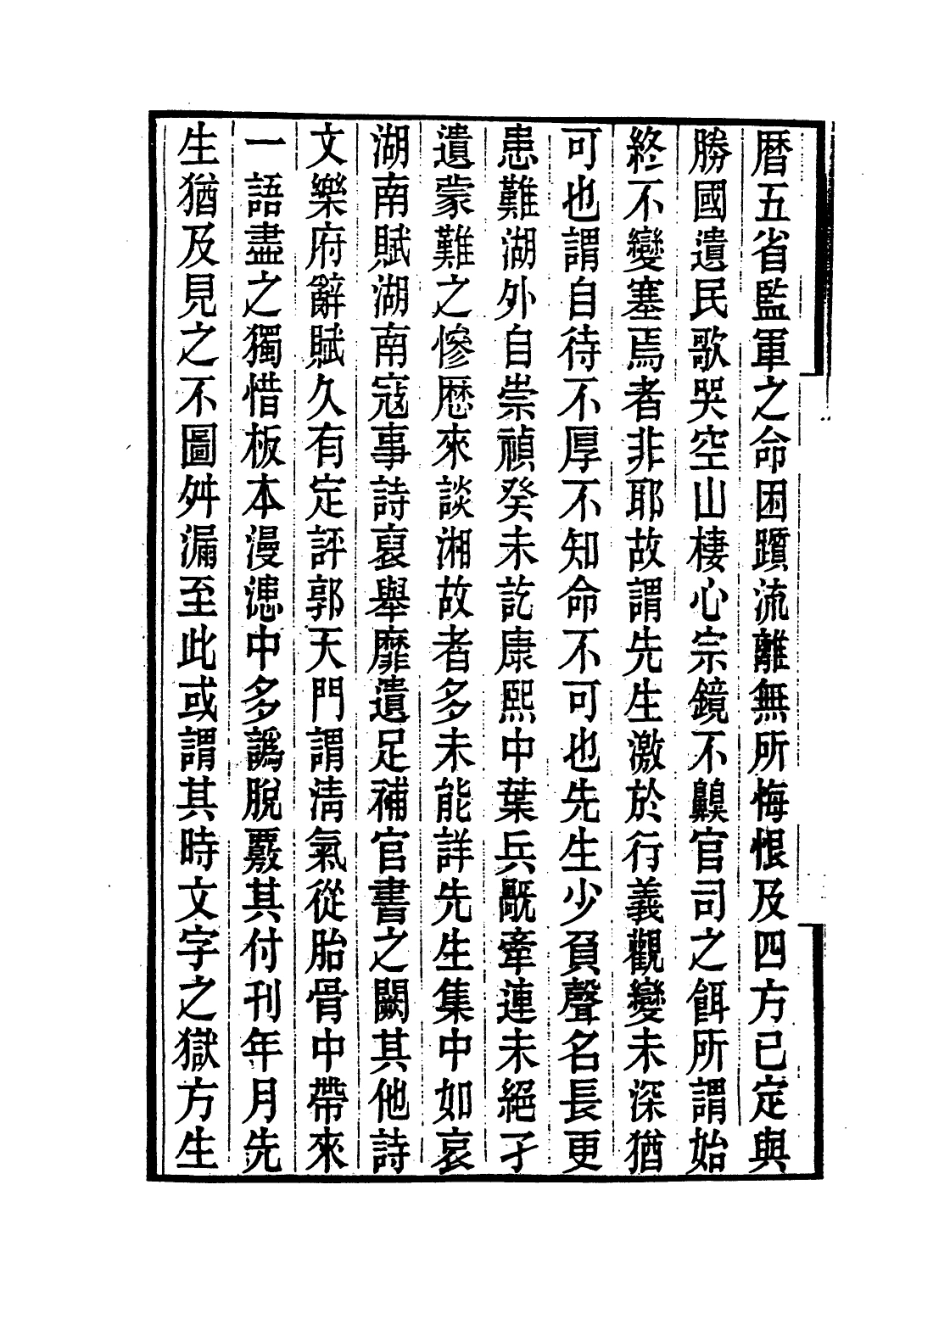 暦五省監軍之命困躓流離無所悔恨及四方已定與
勝國遺民歌哭空山棲心宗鏡不齅官司之餌所謂始
終不變塞焉者非耶故謂先生激於行義觀變未深猶
可也謂自待不厚不知命不可也先生少負聲名長更
患難湖外自崇禎癸未訖康熙中葉兵厩牽連未絕孑
遺蒙難之慘厯來談湘故者多未能詳先生集中如哀
湖南賦湖南寇事詩裒舉靡遺足補官書之闕其他詩
文樂府辭賦久有定評郭天門謂清氣從胎骨中帶來
一語盡之獨惜板本漫漶中多譌脫覈其付刊年月先
生猶及見之不圖舛漏至此或謂其時文字之獄方生